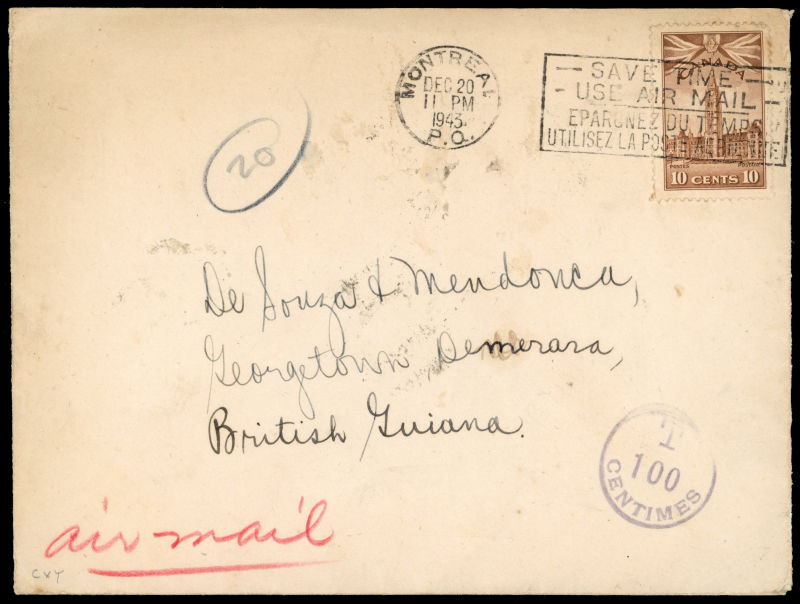 MONTREAL
DEC 20
11 PM
1943
P.O.
SAVE TIME
USE AIR MAIL
EPARGNEZ DU TEMPS
UTILISEZ LA POSTE AERIENNE
CANADA
POSTES POSTAGE
10 CENTS 10
20
De Souza & Mendonca,
Georgetown Demerara,
British Guiana.
T
100
CENTIMES
air mail
CXT